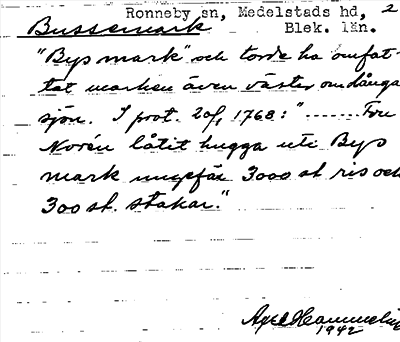 Ronneby sn, Medelstads hd, 2
Bussemark Blek. län.
"Bys mark" och torde ha omfat-
tat marken även väster om Långa
sjön. I prot. 20/1 1768: " ...... Fru
Norén låtit hugga uti Bys
mark ungefär 3000 st ris och
300 st. stakar."
Axel
1942